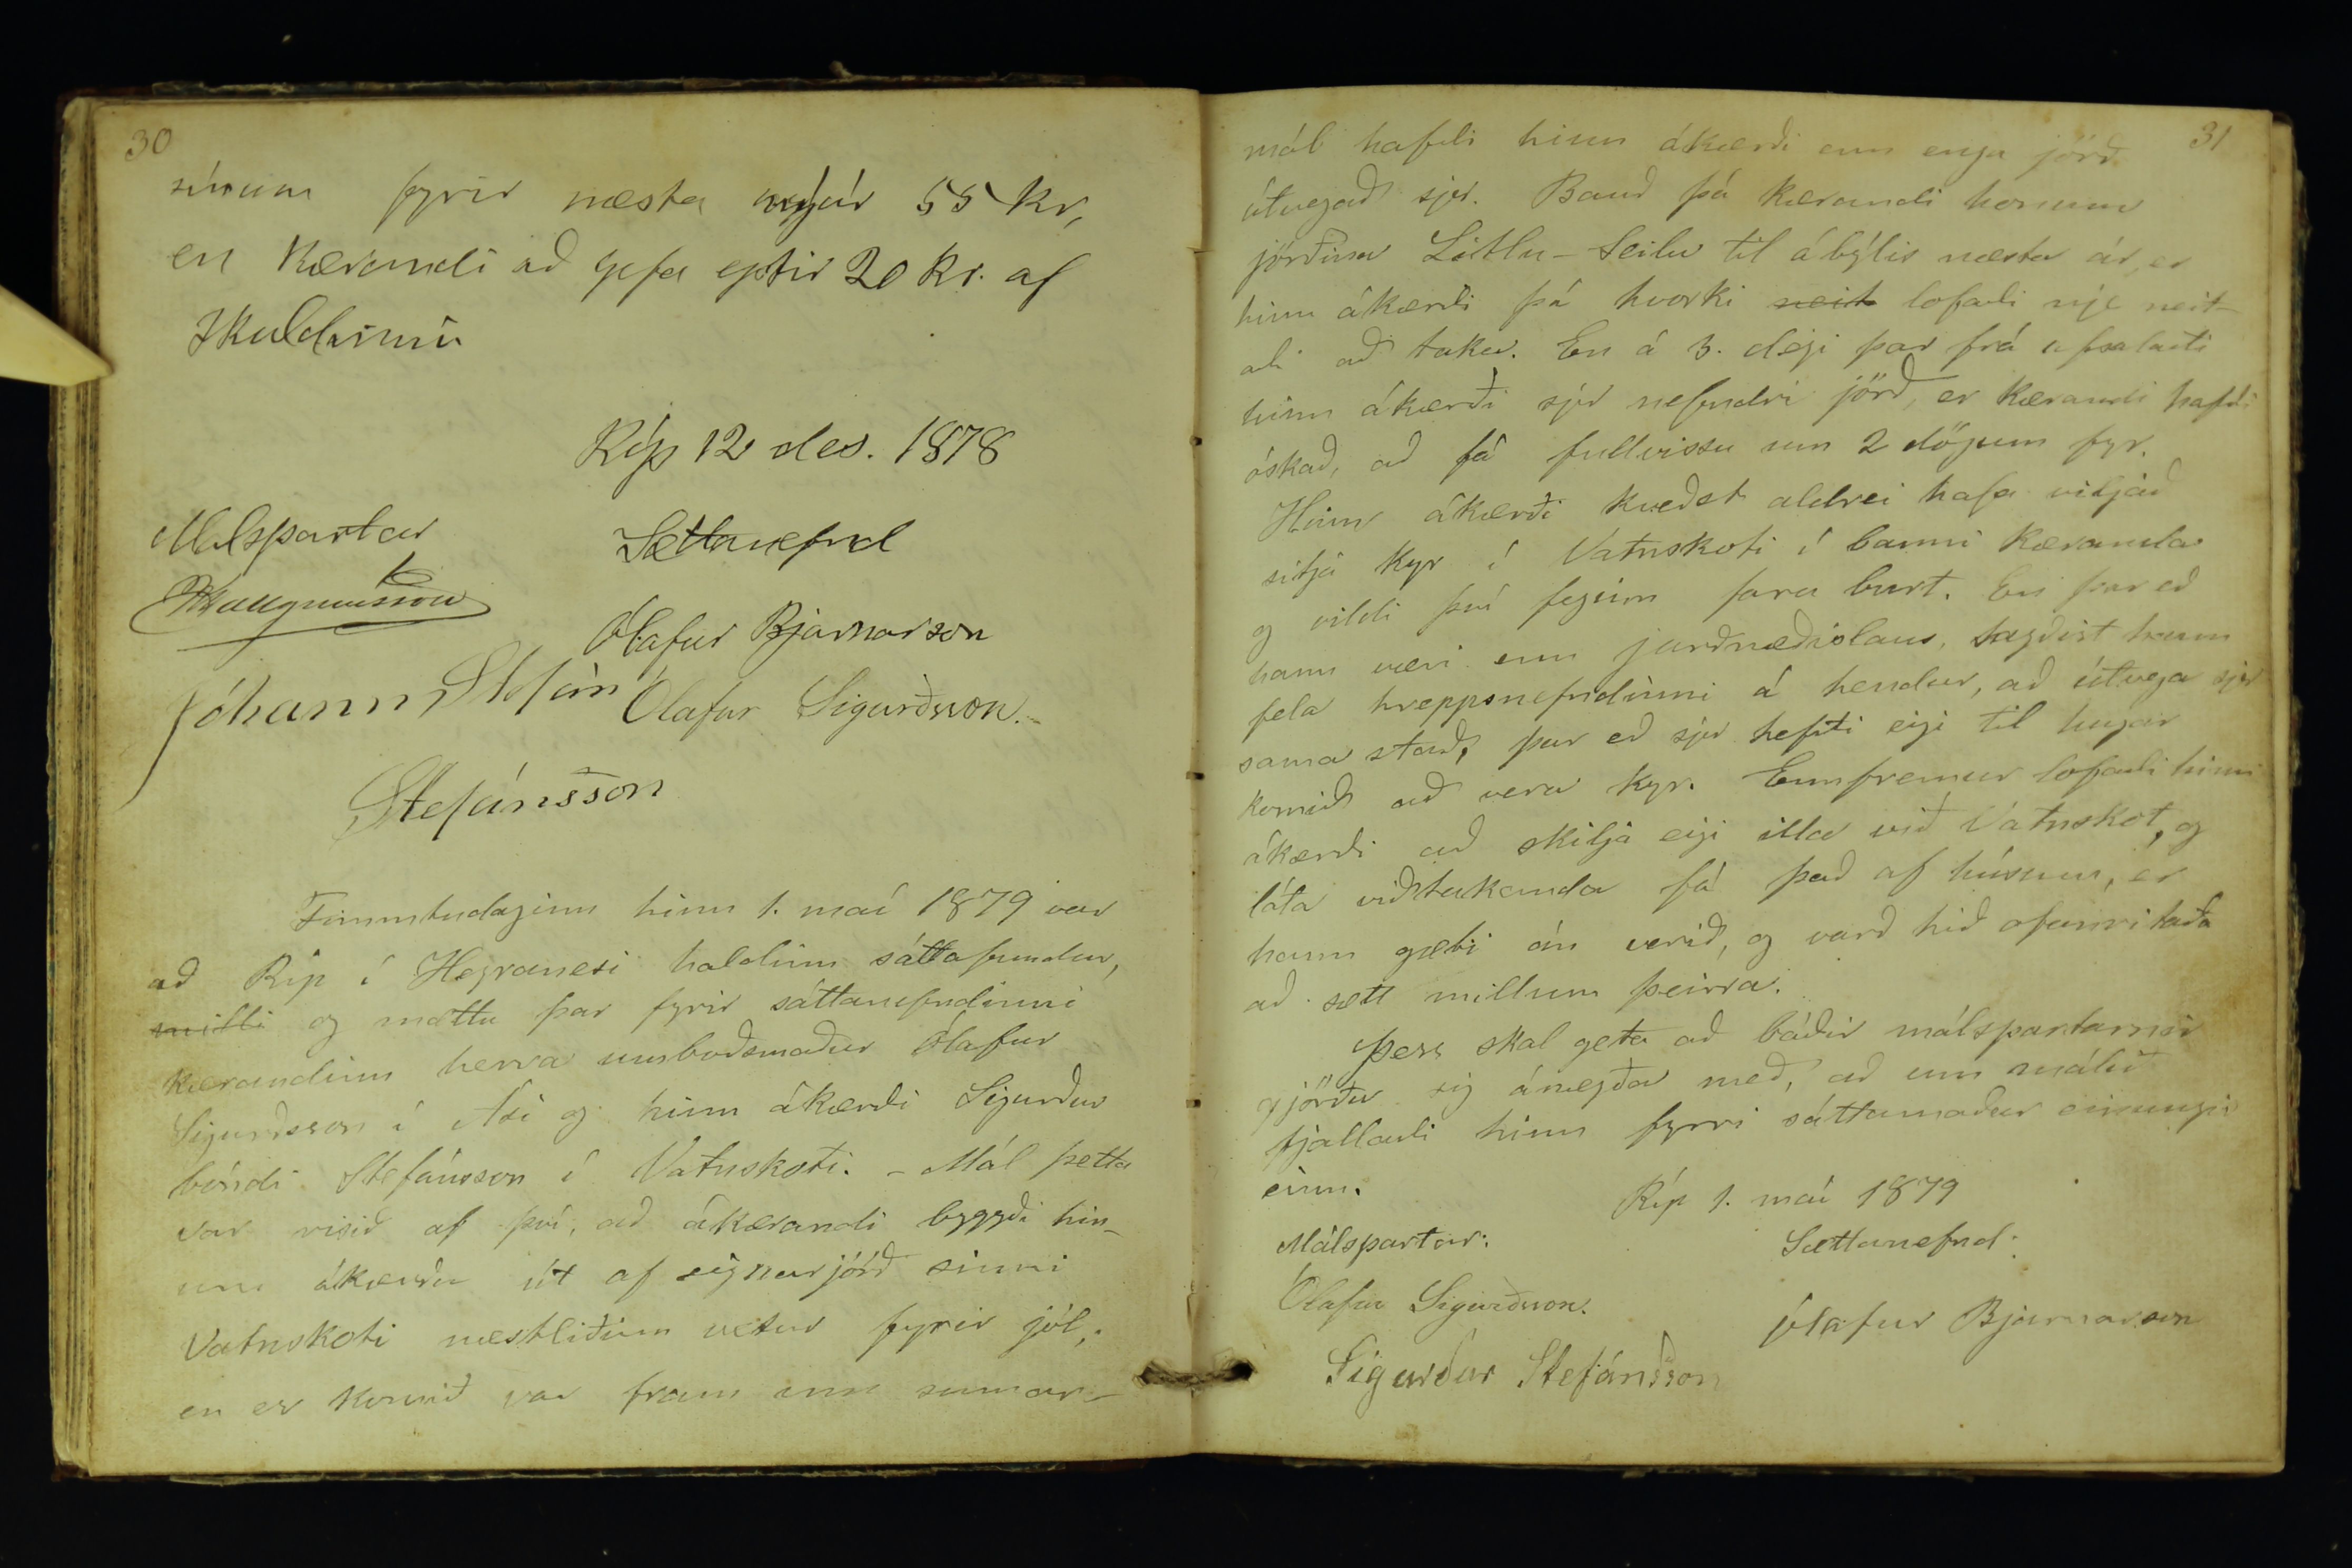 30
sínum fyrir næsta nýár 55 kr,
en kærandi að gefa eptir 20 kr. af
skuldinni
Ríp 12 des. 1878
Malspartar
Sættanefnd
Magnusson
Ólafur Bjarnarson
Jóhann Stefán
Ólafur Sigurðsson.
Stefánsson
Fimmtudaginn hinn 1. maí 1879 var
að Ríp í Hegranesi haldinn sáttafundur,
milli og mættu þar fyrir sáttanefndinni
kærandinn herra umboðsmaður Ólafur
Sigurðsson í Ási og hinn ákærði Sigurður
bóndi Stefánsson í Vatnskoti. - Mál þetta
var risið af því, að ákærandi byggði hin-
um ákærða út af eignarjörð sinni
Vatnskoti næstliðinn vetur fyrir jól,
en er komið var fram um sumar-
31
mál hafði hinn ákærði enn enga jörð
útvegað sjer. Bauð þá kærandi honum
jörðina Litlu-Seilu til ábýlis næsta ár, er
hinn ákærði þá hvorki neit lofaði nje neit-
aði að taka. En á 3. degi þar frá afsalaði
hinn ákærði sjer nefndri jörð, er kærandi hafði
óskað, að fá fullvissu um 2 dögum fyr.
Hinn ákærði kveðst aldrei hafa viljað
sitja kyr í Vatnskoti í banni kæranda
og vildi því feginn fara burt. En þar eð
hann væri enn jarðnæðislaus, sagðist hann
fela hreppsnefndinni á hendur, að útvega sjer
sama stað, þar eð sjer hefði eigi til hugar
komið að vera kyr. Ennfremur lofaði hinn
ákærði að skilja eigi illa við Vatnskot, og
láta viðtakanda fá það af húsum, er
hann gæti án verið, og varð hið ofanritaða
að sætt millum þeirra.
Þess skal geta að báðir málspartarnir
gjörðu sig ánægða með, að um málið
fjallaði hinn fyrri sáttamaður einungis
einn.
Ríp 1. maí 1879
Málspartar:
Sættanefnd:
Ólafur Sigurðsson.
Ólafur Bjarnarson
Sigurður Stefánsson